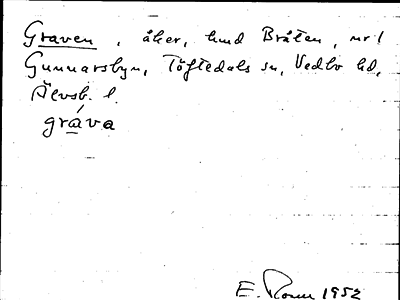 Graven, åker, hmd Bråten, nr 1
Gunnarsbyn, Töftedals sn, Vedbo hd,
Älvsb. l.
gráva
E. 1952